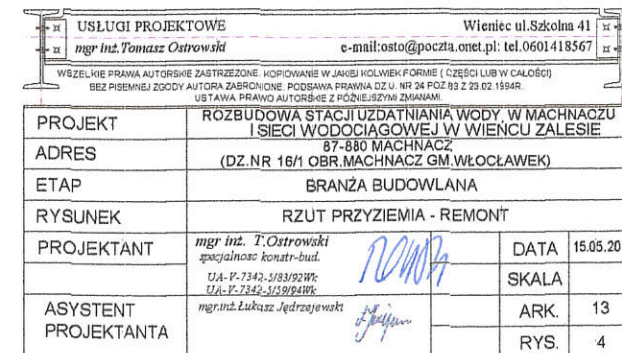 USŁUGI PROJEKTOWE Wieniec ul.Szkolna 41
mgr inż.Tomasz Ostrowski e-mail:osto@poczta.onet.pl: tel.0601418567
WSZELKIE PRAWA AUTORSKIE ZASTRZEŻONE. KOPIOWANIE W JAKIEJ KOLWIEK FORMIE ( CZĘŚCI LUB W CAŁOŚCI)
BEZ PISEMNEJ ZGODY AUTORA ZABRONIONE. PODSAWA PRAWNA DZ.U. NR 24 POZ.83 Z 23.02.1994R.
USTAWA PRAWO AUTORSKIE Z PÓŹNIEJSZYMI ZMIANAMI.
PROJEKT ROZBUDOWA STACJI UZDATNIANIA WODY, W MACHNACZU
I SIECI WODOCIĄGOWEJ W WIEŃCU ZALESIE
ADRES 87-880 MACHNACZ
(DZ.NR 16/1 OBR.MACHNACZ GM.WŁOCŁAWEK)
ETAP BRANŻA BUDOWLANA
RYSUNEK RZUT PRZYZIEMIA - REMONT
PROJEKTANT mgr inż. T.Ostrowski
specjalnosc konstr-bud.
UA-V-7342-5/83/92Wk
UA-V-7342-5/59/94Wk
DATA 15.05.20
SKALA
ASYSTENT
PROJEKTANTA mgr.inż.Łukasz Jędrzejewski
ARK. 13
RYS. 4